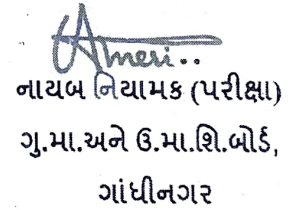 નાયબ નિયામક (પરીક્ષા)
ગુ.મા.અને ઉ.મા.શિ.બોર્ડ,
ગાંધીનગર